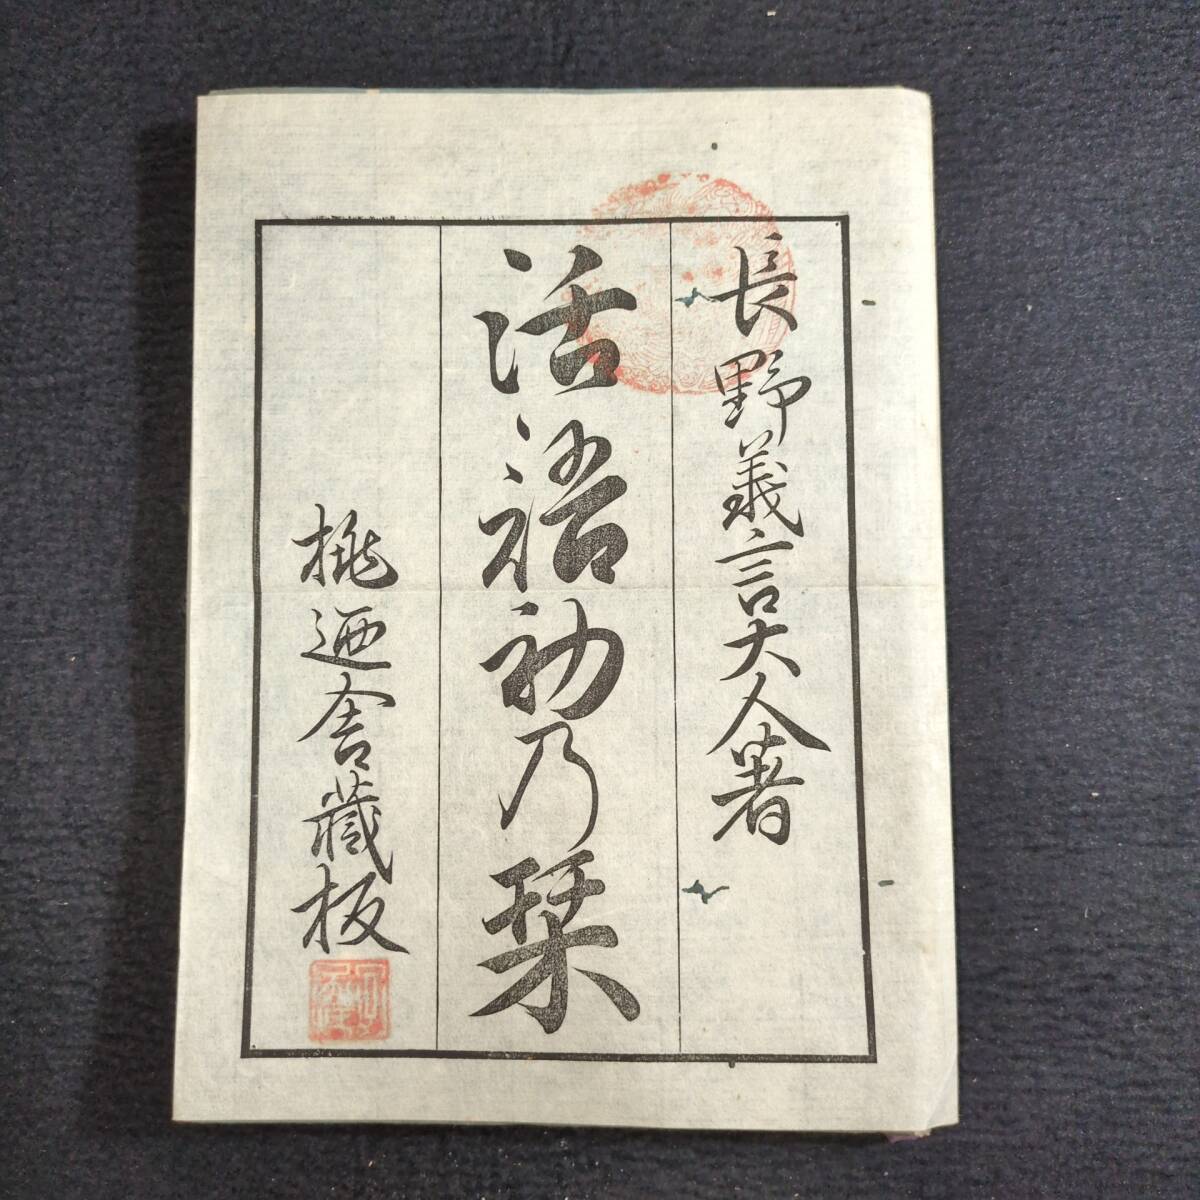 長野義言大人著
活語初乃栞
桃廼舎蔵板